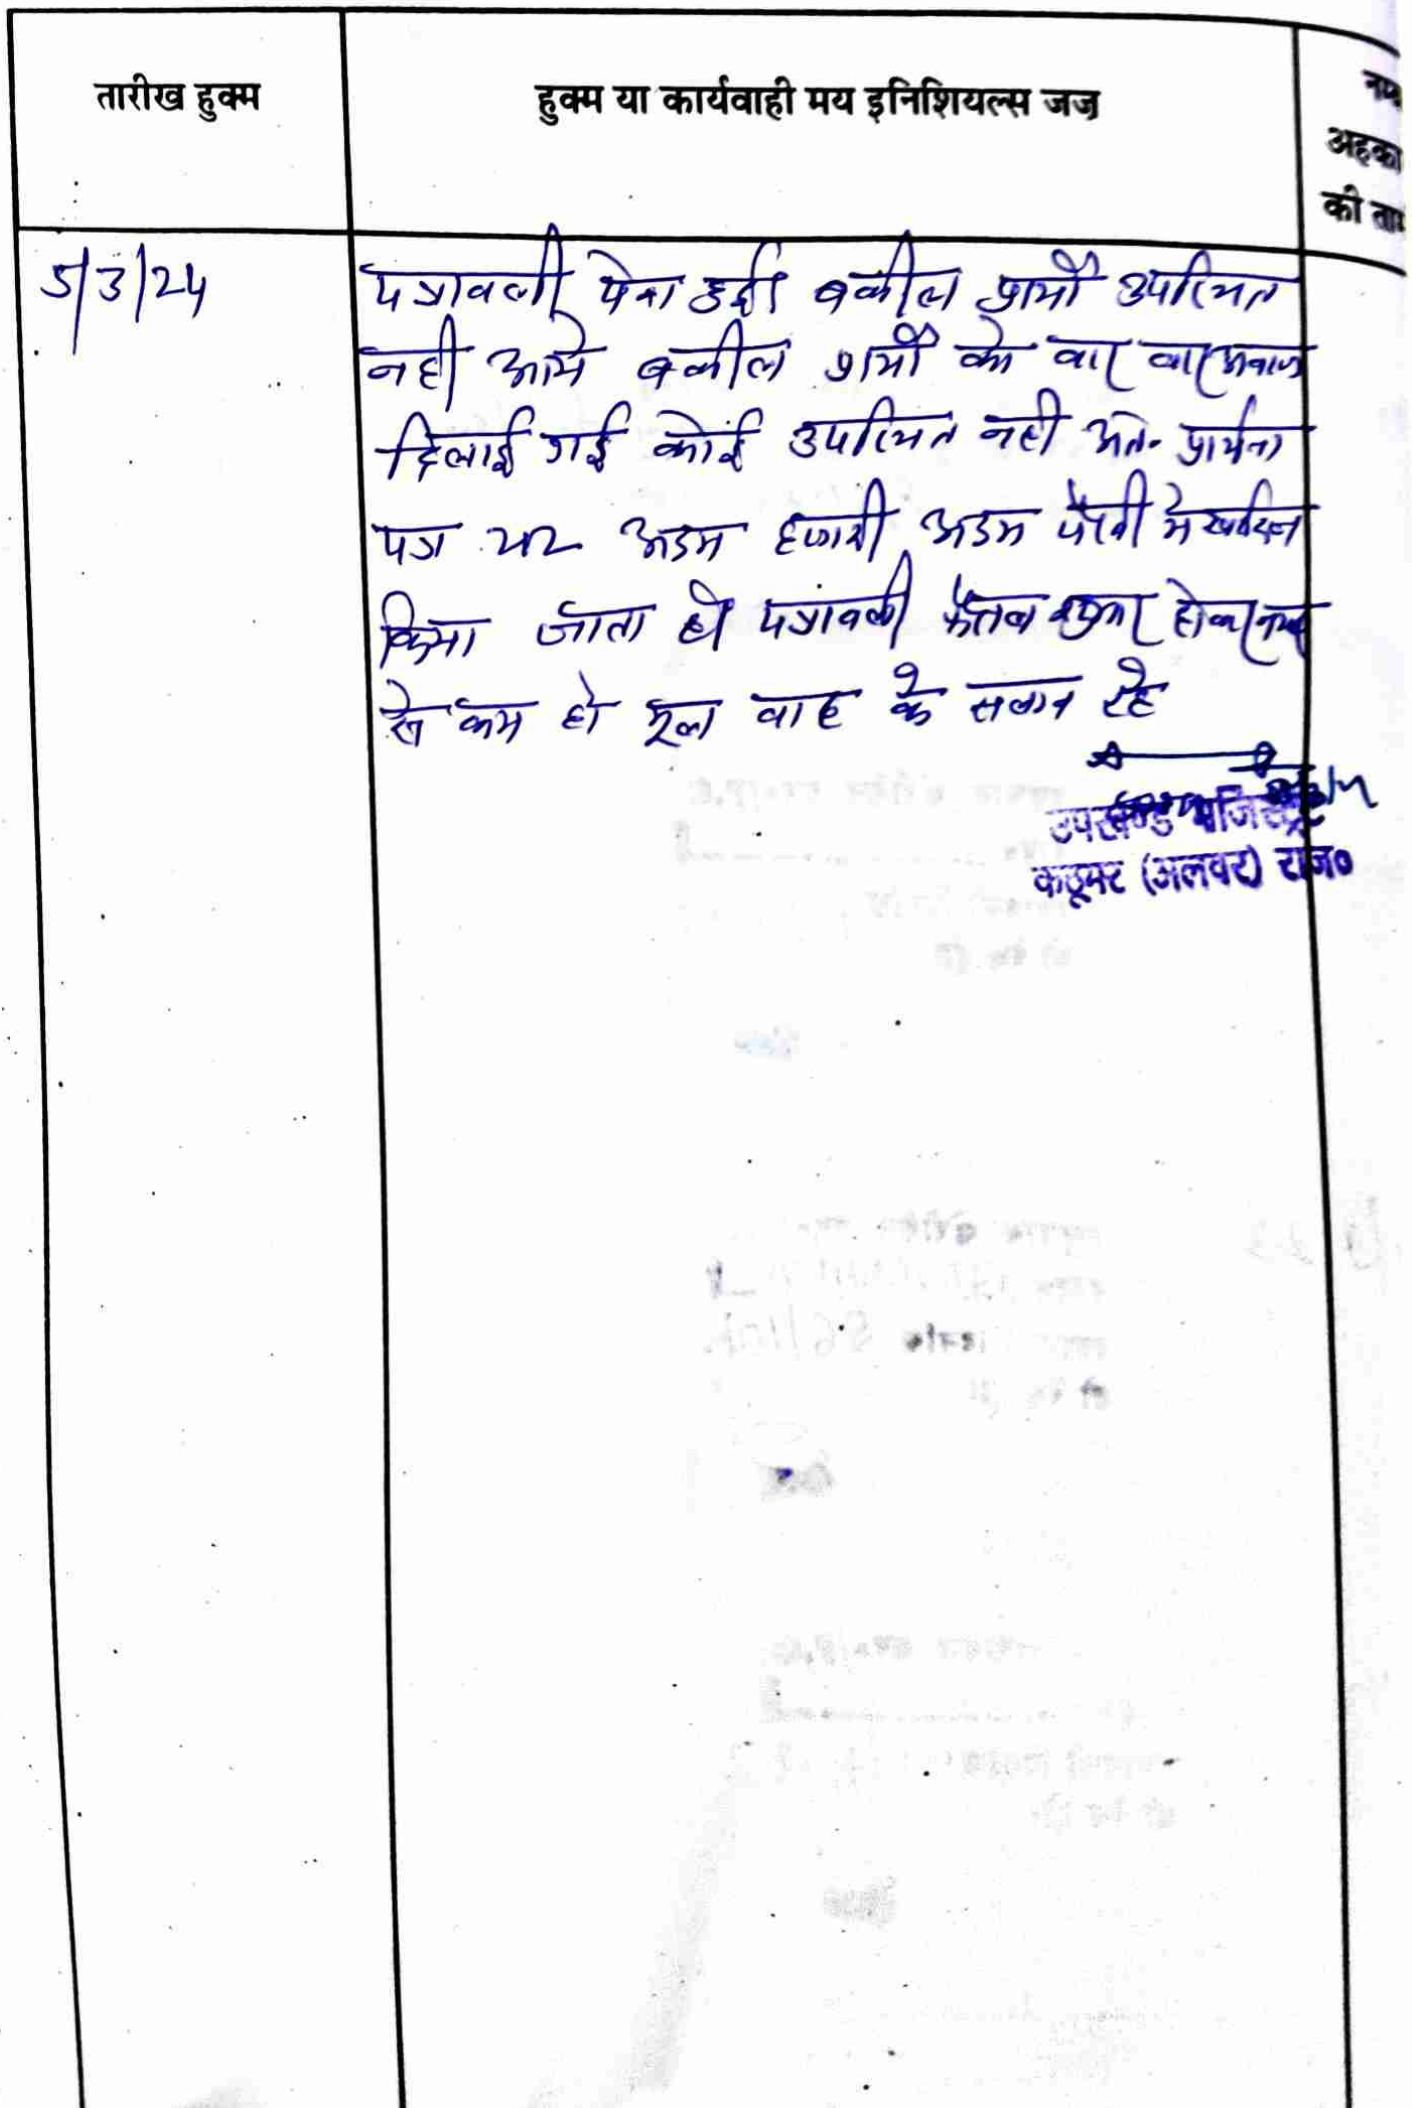 तारीख हुक्म
हुक्म या कार्यवाही मय इनिशियल्स जज
अहका
की ता
5/3/24
पत्रावली पेश हुई। वकील प्रार्थी उपस्थित
नही आये वकील प्रार्थी को बार बार आवाज
दिलाई गई कोई उपस्थित नही अतः प्रार्थना
पत्र अदम हाजरी अदम पैरवी मे
किया जाता है पत्रावली फैसल शुमार होकर नम्बर
से कम हो मूल वाद के सलंग्न रहे
उपखण्ड मजिस्ट्रेट
कठूमर (अलवर) राज०